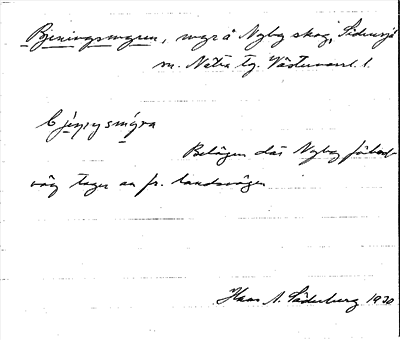 Bjeningsmyren, myr å Nyby skog, Sidensjö
sn. Nätra tg. Västernorrl. l.
bjèniŋsmýra
Belägen där Nyby fäbod-
väg tager av fr. landsvägen
Hans A. Söderberg 1930